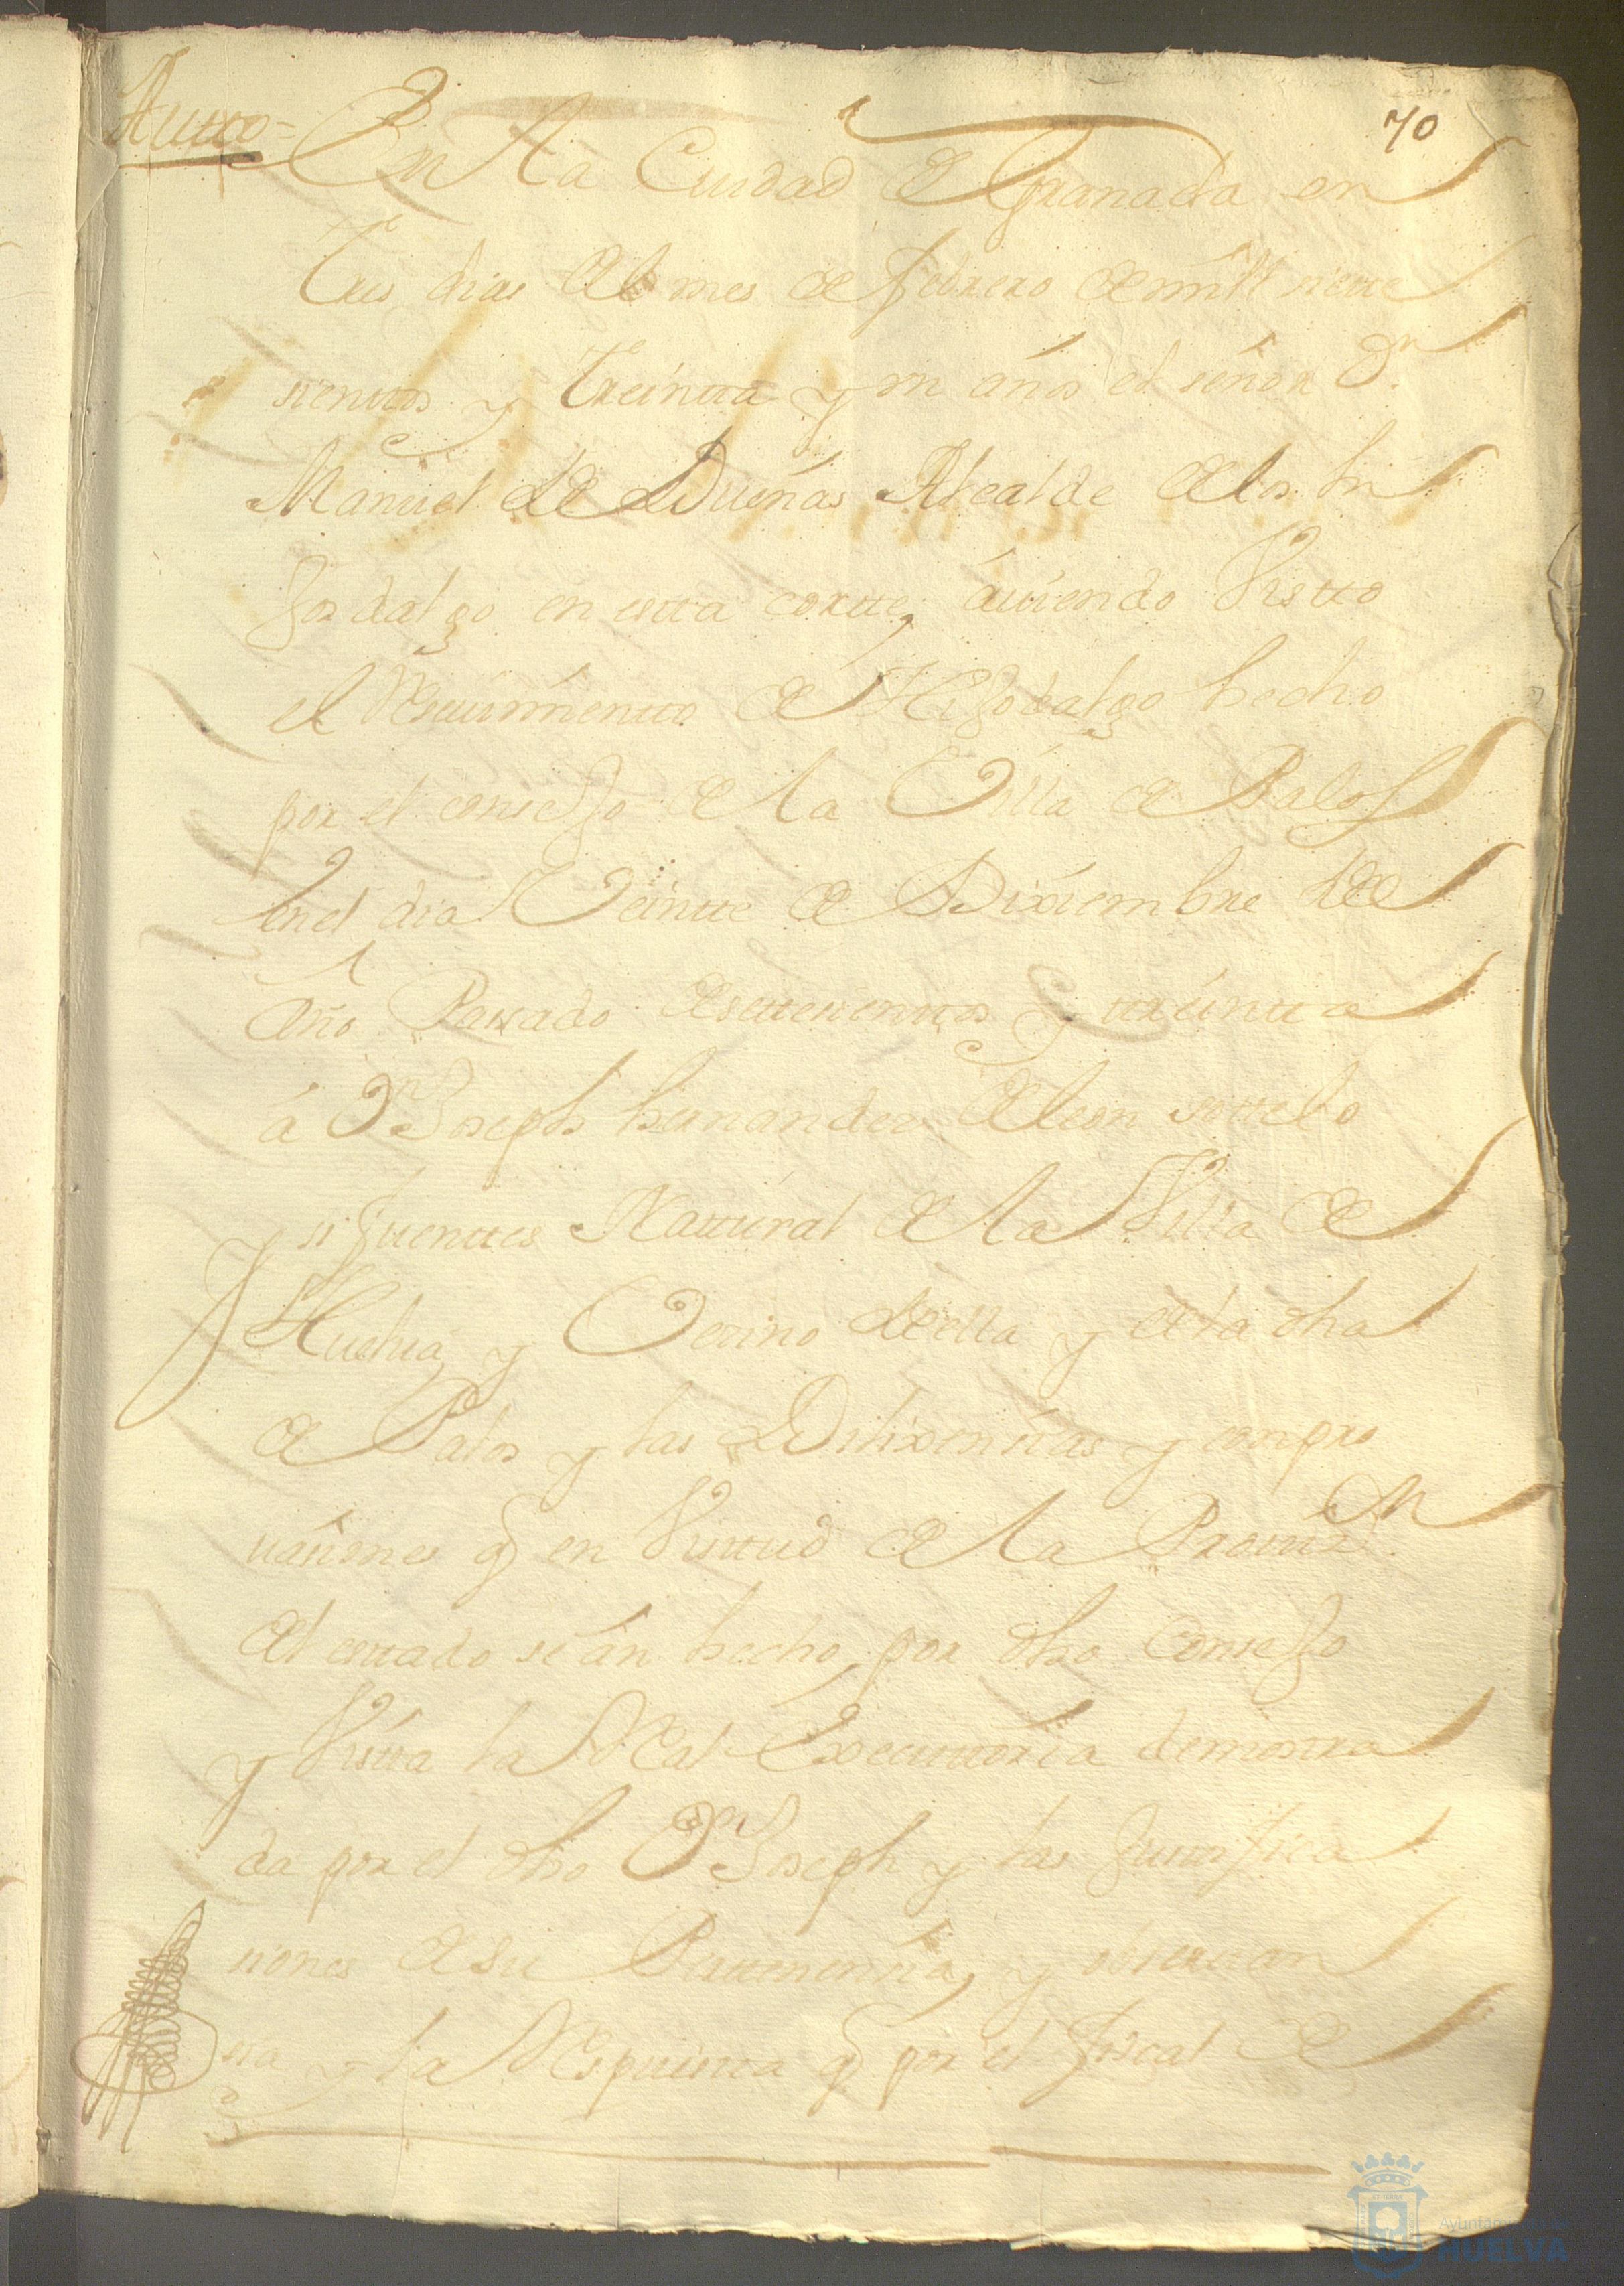 70
Autto=
En la Ciudad de Granada en
tres dias del mes de febrero de mill siette
sienttos y treintta y un años el señor Dn
Manuel de Dueñas Alcalde de los hi
Jos dalgo en estta cortte, auiendo Vistto
el Reciuimientto de Hijodalgo hecho
por el consejo de la Villa de Palos
en el dia Veintte de Diziembre del
Año Passado de settesienttos y treintta
á Dn Joseph hernandez de leon sottelo
y sifuenttes Nattural de la Villa de
Huelua, y Vezino de ella y de la dha
de Palos y las Dilixencias y compro
uasiones q en Virttud de la Prouizon
de esttado se án hecho, por dho Consejo
y Vistta la Real Executtoria demostra
da por el dho Dn Joseph y las Justifica
siones de su Perttenencia, y obseruan
sia y la Respuestta q por el fiscal de
Ayuntamiento de
HUELVA